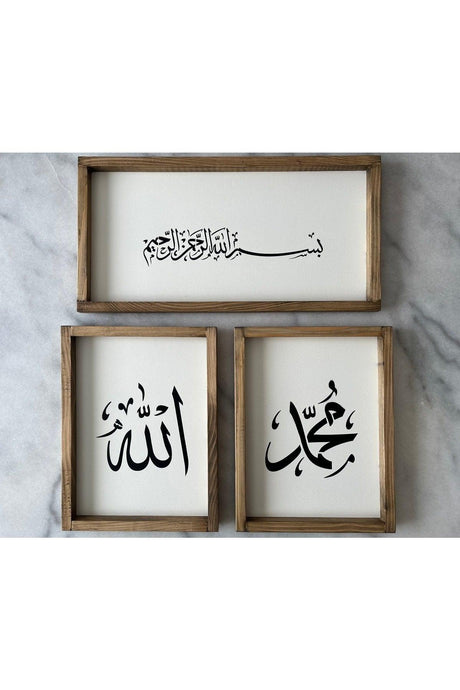 بسم الله الرحمن الرحيم
الله
محمد